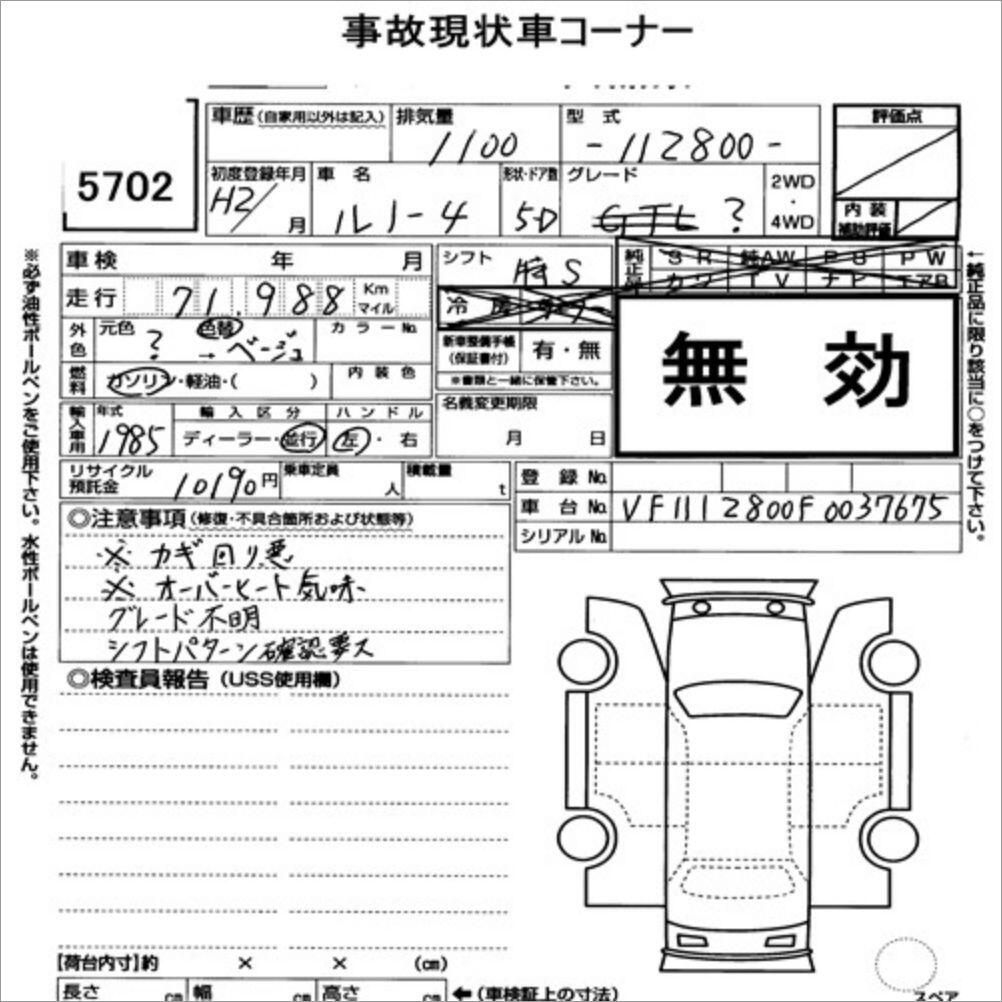 事故現状車コーナー
5702
車歴(自家用以外は記入)
排気量
1100
型式
-112800-
評価点
初度登録年月
H2/ 月
車名
ルノー4
形状・ドア数
5D
グレード
GTL ?
2WD
・
4WD
内装
補助評価
※必ず油性ボールペンをご使用下さい。水性ボールペンは使用できません。
車検 年 月
走行 71,988 Km マイル
外色
元色
?
色替
→ベージュ
カラーNo.
燃料
ガソリン・軽油・( )
内装色
輸入車用
年式
1985
輸入区分
ディーラー・並行
ハンドル
左・右
シフト
純正品
SR 純AW PS PW
カワ TV ナビ エアB
新車整備手帳
(保証書付)
有・無
※書類と一緒に保管下さい。
名義変更期限
月 日
無効
←純正品に限り該当に○をつけて下さい。
リサイクル
預託金
10190円
乗車定員
人
積載量
t
登録No.
車台No. VF1112800F0037675
シリアルNo.
◎注意事項(修復・不具合箇所および状態等)
※カギ回り悪
※オーバーヒート気味
グレード不明
シフトパターン確認要ス
◎検査員報告(USS使用欄)
【荷台内寸】約 × × (cm)
長さ cm 幅 cm 高さ cm ←(車検証上の寸法)
スペア